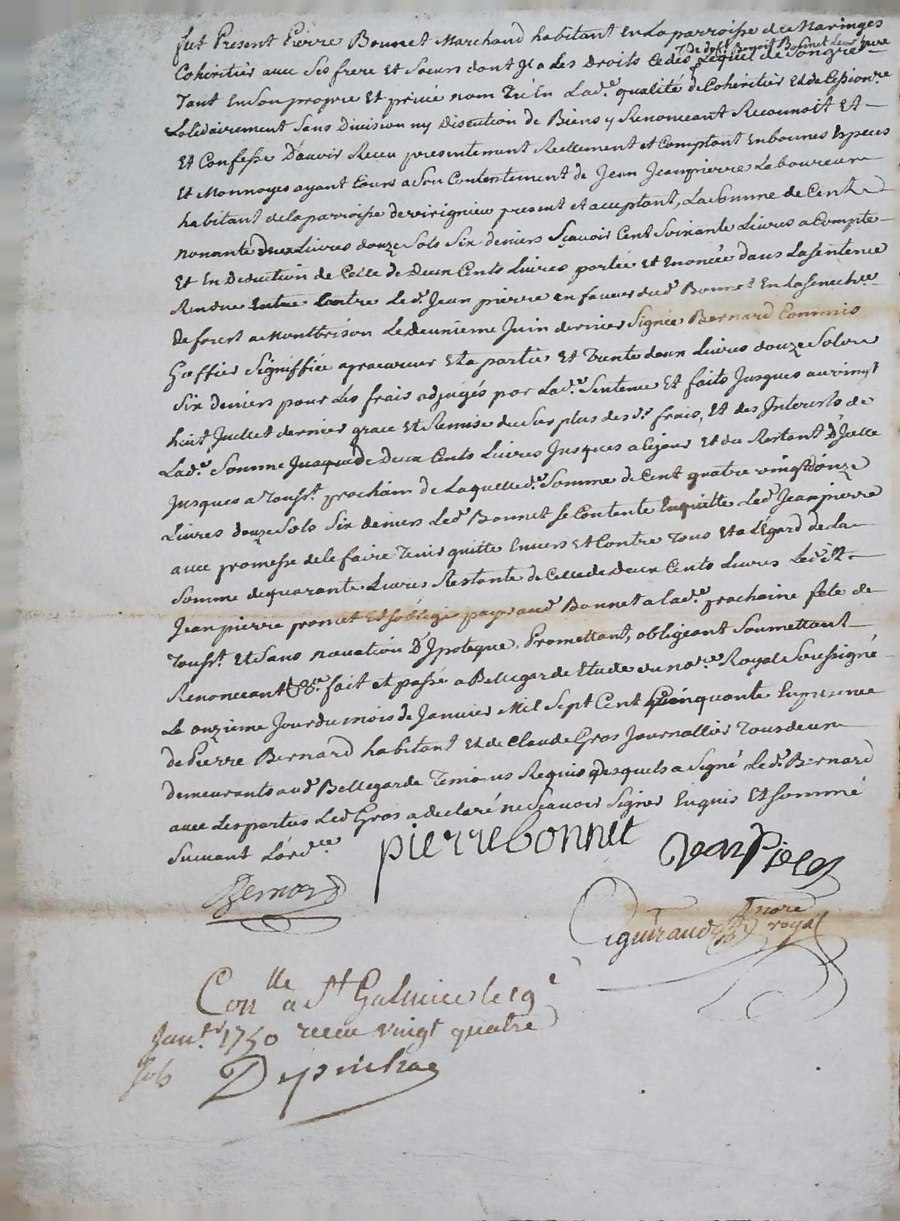 fut Present Pierre Bonnet Marchand habitant En La parroisse de Maringes
Coheritier avec Ses frere Et Soeurs dont Il a Les Droits Cedés Lequel de Son gré
Benoit Bonnet Leur pere
Tant En Son propre Et privé nom qu'En Lad.e qualité de Coheritier Et de Cession.re
Solidairement Sans Division ny Discution de Biens y Renoncant Reconnoit Et
Et Confesse D'auoir Receu presentement Reellement et Comptant En bonnes Especes
Et Monnoyes ayant Cours a Son Contentement de Jean Jeanpierre Laboureur
habitant de la parroisse de virignieu present et acceptant, La Somme de Cent
nonante deux Livres douze Sols Six deniers Scauoir Cent Soixante Livres a Compte
Et En Deduction de Celle de Deux Cents Livres portée Et Enoncée dans La Sentence
Rendue Contre Led. Jean pierre en faueur dud. Bonnet En La Senech.ée
De forest a Montbrison Le deuxieme Juin dernier Signée Bernard Commis
Greffier Signiffiée a procureur Et a partie Et Trente deux Livres douze Sols
Six deniers pour Les frais adjugés par Lad.e Sentence Et faits Jusques au vingt
huit Juillet dernier grace Et Remise du Sus plus des d.s frais, Et des Interests de
Lad.e Somme de Deux Cents Livres Jusques a ce jour Et du Restant D'Jcelle
Jusques a Touss.t prochain de Laquelle d.e Somme de Cent quatre vingt Douze
Livres douze Sols Six deniers Led. Bonnet Se Contente En quitte Led. Jeanpierre
auec promesse de le faire Tenir quitte Enuers Et Contre Tous Et a L'Egard de La
Somme de quarante Livres Restante de Celle de Deux Cents Livres Led.
Jeanpierre promet Et S'oblige payer aud. Bonnet a Lad.e prochaine fête de
Touss.t Et Sans nouation D'Ipoteque. Promettant, obligeant Soumettant
Renoncant &.a fait et passé a Bellegarde Etude du no.re Royal Soussigné
Le onzieme Jour du mois de Januier Mil Sept Cent Cinquante En presence
de Pierre Bernard habitant Et de Claude Gros Journallier Tous deux
demeurants aud. Bellegarde Temoins Requis desquels a Signé Led. Bernard
auec Les parties Led. Gros a declaré ne Scauoir Signer Enquis Et Sommé
Suiuant L'ord.ce
pierre bonnet
Bernard
Guiraud
nore
royal
Con.lle a St Galmier le 19e
Jan.er 1750 receu vingt quatre
Sols